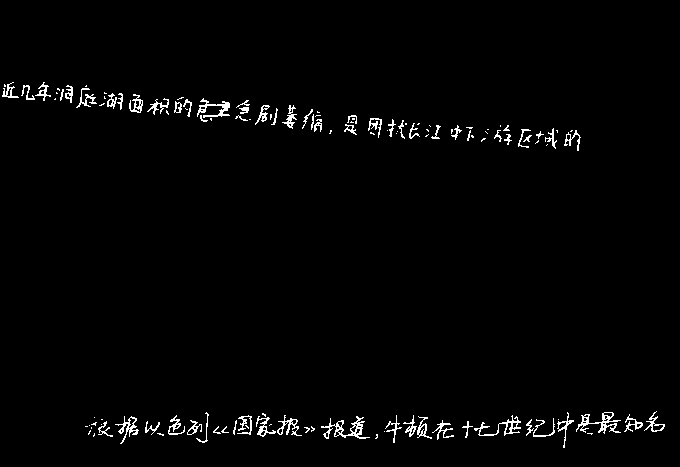 近几年洞庭湖面积的急剧萎缩,是困扰长江中下游区域的
根据以色列《国家报》报道,牛顿在十七世纪中是最知名